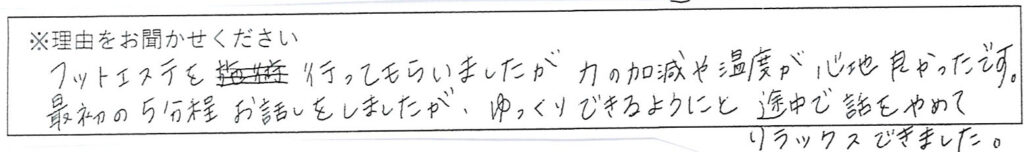 ※理由をお聞かせください
フットエステを 行ってもらいましたが 力の加減や温度が 心地良かったです。
最初の5分程 お話しをしましたが、ゆっくりできるようにと 途中で 話をやめて
リラックスできました。